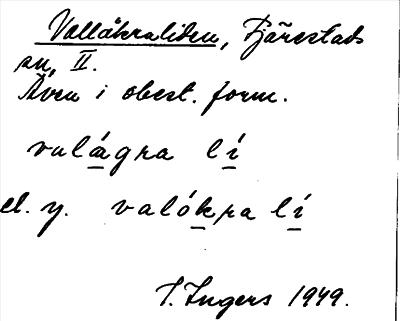 Vallåkraliden, Fjärestads
sn, II.
Även i obest. form.
valágra lí
el. y. valókra lí
I. Ingers 1949.